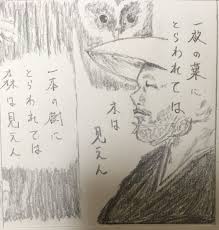 一枚の葉に
とらわれては
木は
見えん
一本の樹に
とらわれては
森は見えん